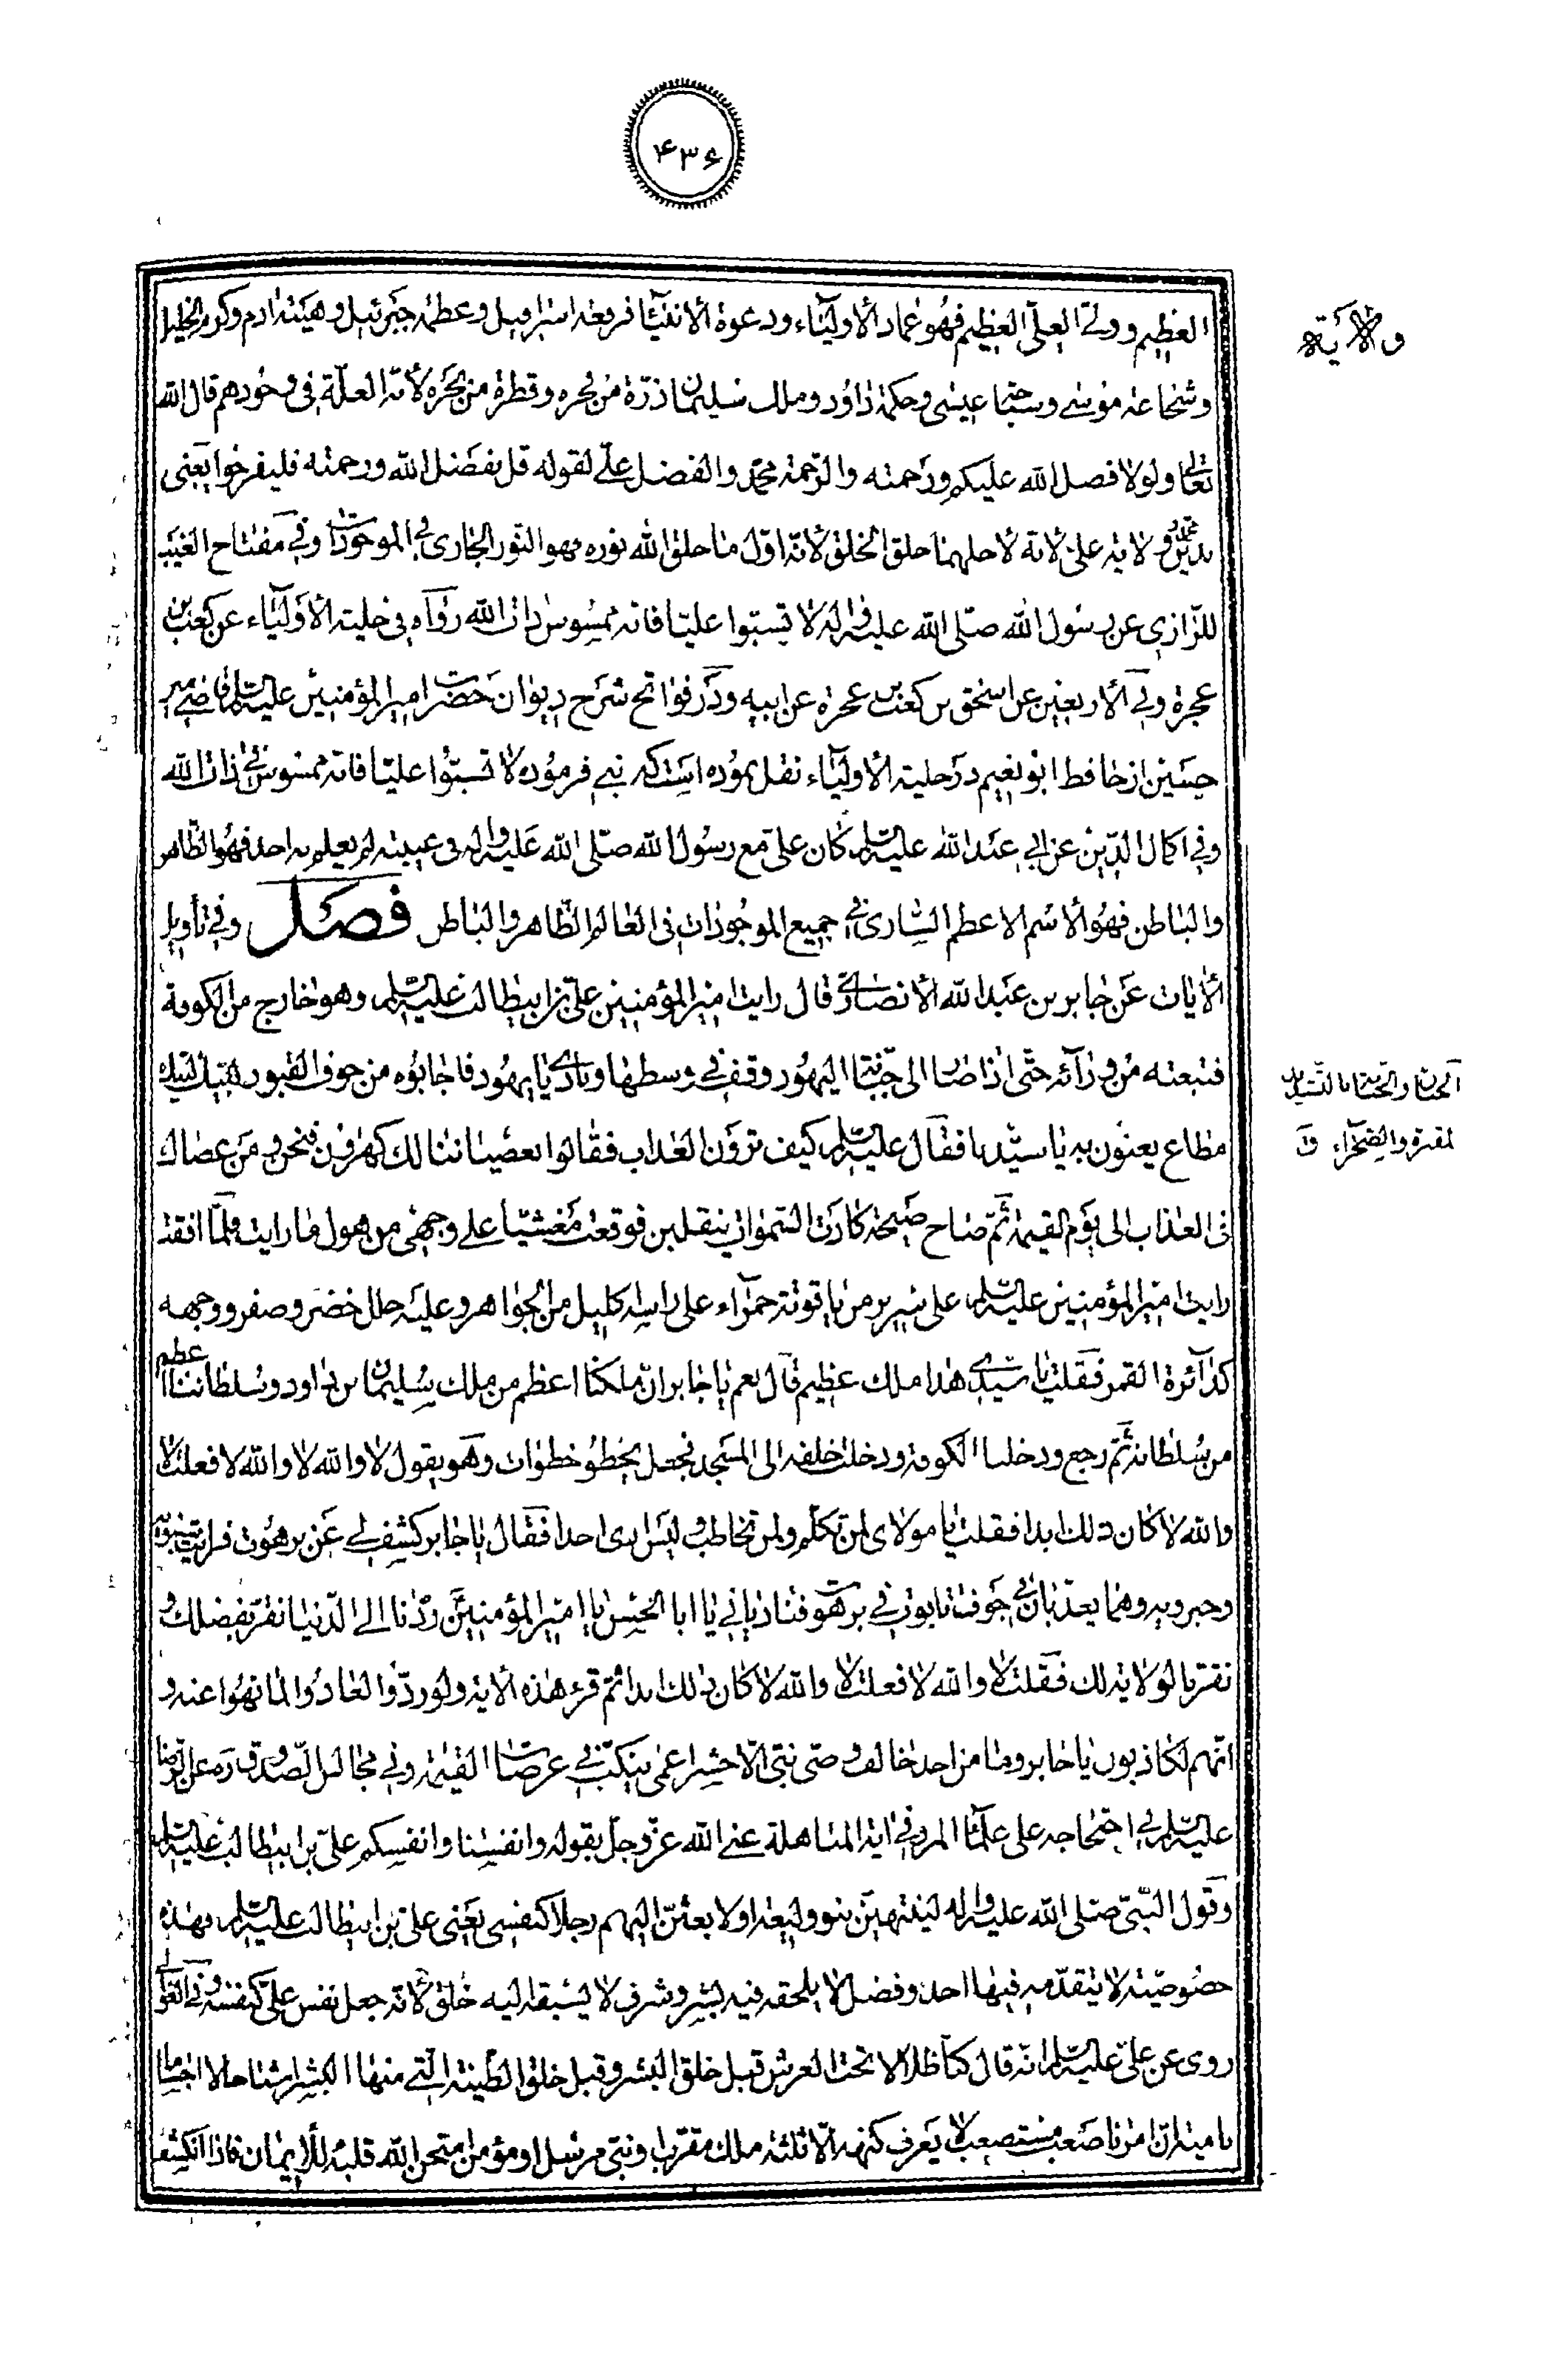 ۴۳۶
العظيم وولي العلي العظيم فهو عماد الأولياء ودعوة الأنبياء فرفعة اسرافيل وعظمة جبرئيل وهيئة ادم وكرم الخليل
ولاية
وشجاعة موسى وسياحة عيسى وحكمة داود وملك سليمان ذرّة من فخره وقطرة من بحره لأنه العلّة في وجودهم قال الله
تعالى ولولا فضل الله عليكم ورحمته والرّحمة محمّد والفضل علي لقوله قل بفضل الله ورحمته فليفرحوا يعني
بدين محمد وولاية علي لأنه لاجلهما خلق الخلق لأنه اوّل ما خلق الله نوره فهو النور الجاري في الموجودات وفي مفتاح الغيب
للرّازي عن رسول الله صلّى الله عليه واله لا تسبّوا عليّا فانه ممسوس بذات الله رواه في حلية الأولياء عن كعب بن
عجرة وفي الأربعين عن اسحق بن كعب بن عجرة عن ابيه ودر فواتح شرح ديوان حضرت امير المؤمنين عليه السلام قاضي مير
حسين از حافظ ابو نعيم در حلية الأولياء نقل نموده است كه نبي فرموده لا تسبّوا عليّا فانه ممسوس في ذات الله
وفي اكمال الدّين عن ابي عبد الله عليه السلام كان علي مع رسول الله صلّى الله عليه واله في غيبته لم يعلم به احد فهو الظاهر
والباطن فهو الأسم الاعظم السّاري في جميع الموجودات في العالم الظّاهر والباطن فصل وفي تأويل
الأيات عن جابر بن عبد الله الأنصاري قال رايت امير المؤمنين علي بن ابيطالب عليه السلام وهو خارج من الكوفة
فتبعته من ورآئه حتّى اذا صار الى جبّانة اليهود وقف في وسطها ونادى يا يهود فاجابوه من جوف القبور لبّيك لبّيك
الجبان والجبانة بالتّشديد
مطاع يعنون به يا سيّدنا فقال عليه السلام كيف ترون العذاب فقالوا بعصياننا لك كهرون فنحن ومن عصاك
المقبرة والصّحراء ق
في العذاب الى يوم القيمة ثمّ صاح صيحة كادت السّموات ينقلبن فوقعت مغشيّا على وجهي من هول ما رايت فلمّا افقت
رايت امير المؤمنين عليه السلام على سرير من ياقوتة حمرآء على راسه اكليل من الجواهر وعليه حلل خضر وصفر ووجهه
كدآئرة القمر فقلت يا سيّدي هذا ملك عظيم قال نعم يا جابر انّ ملكنا اعظم من ملك سليمان بن داود وسلطاننا اعظم
من سلطانه ثمّ رجع ودخلنا الكوفة ودخلت خلفه الى المسجد فجعل يخطو خطوات وهو يقول لا والله لا والله لا فعلت لا
والله لا كان ذلك ابدا فقلت يا مولاي لمن تكلّم ولمن تخاطب وليس ارى احدا فقال يا جابر كشف لي عن برهوت فرايت شنبويه
وحبرويه وهما يعذّبان في جوف تابوت في برهوت فناديانى يا ابا الحسن يا امير المؤمنين ردّنا الى الدّنيا نقرّ بفضلك و
نقرّ بالولاية لك فقلت لا والله لا فعلت لا والله لا كان ذلك ابدا ثمّ قرء هذه الأية ولو ردّوا لعادوا لما نهوا عنه و
انّهم لكاذبون يا جابر وما من احد خالف وصي نبي الّا حشر اعمى يتكبّب في عرصات القيمة وفي مجالس الصّدوق ره عن الرّضا
عليه السلام في احتجاجه على علماء المرو في اية المباهلة عنى الله عزّ وجلّ بقوله وانفسنا وانفسكم علي بن ابيطالب عليه السلام
وقول النّبي صلّى الله عليه واله لينتهينّ بنو وليعة او لابعثنّ اليهم رجلا كنفسي يعني علي بن ابيطالب عليه السلام فهذه
خصوصيّة لا يتقدّمه فيها احد وفضل لا يلحقه فيه بشر وشرف لا يسبقه اليه خلق لأنه جعل نفس علي كنفسه وفي
روى عن علي عليه السلام انه قال كنّا ظلالا تحت العرش قبل خلق البشر وقبل خلق الطّينة الّتي منها البشر اشباحا لا اجساما
نامية انّ امرنا صعب مستصعب لا يعرف كنهه الّا ثلثة ملك مقرّب او نبي مرسل او مؤمن امتحن الله قلبه للأيمان فاذا انكشف